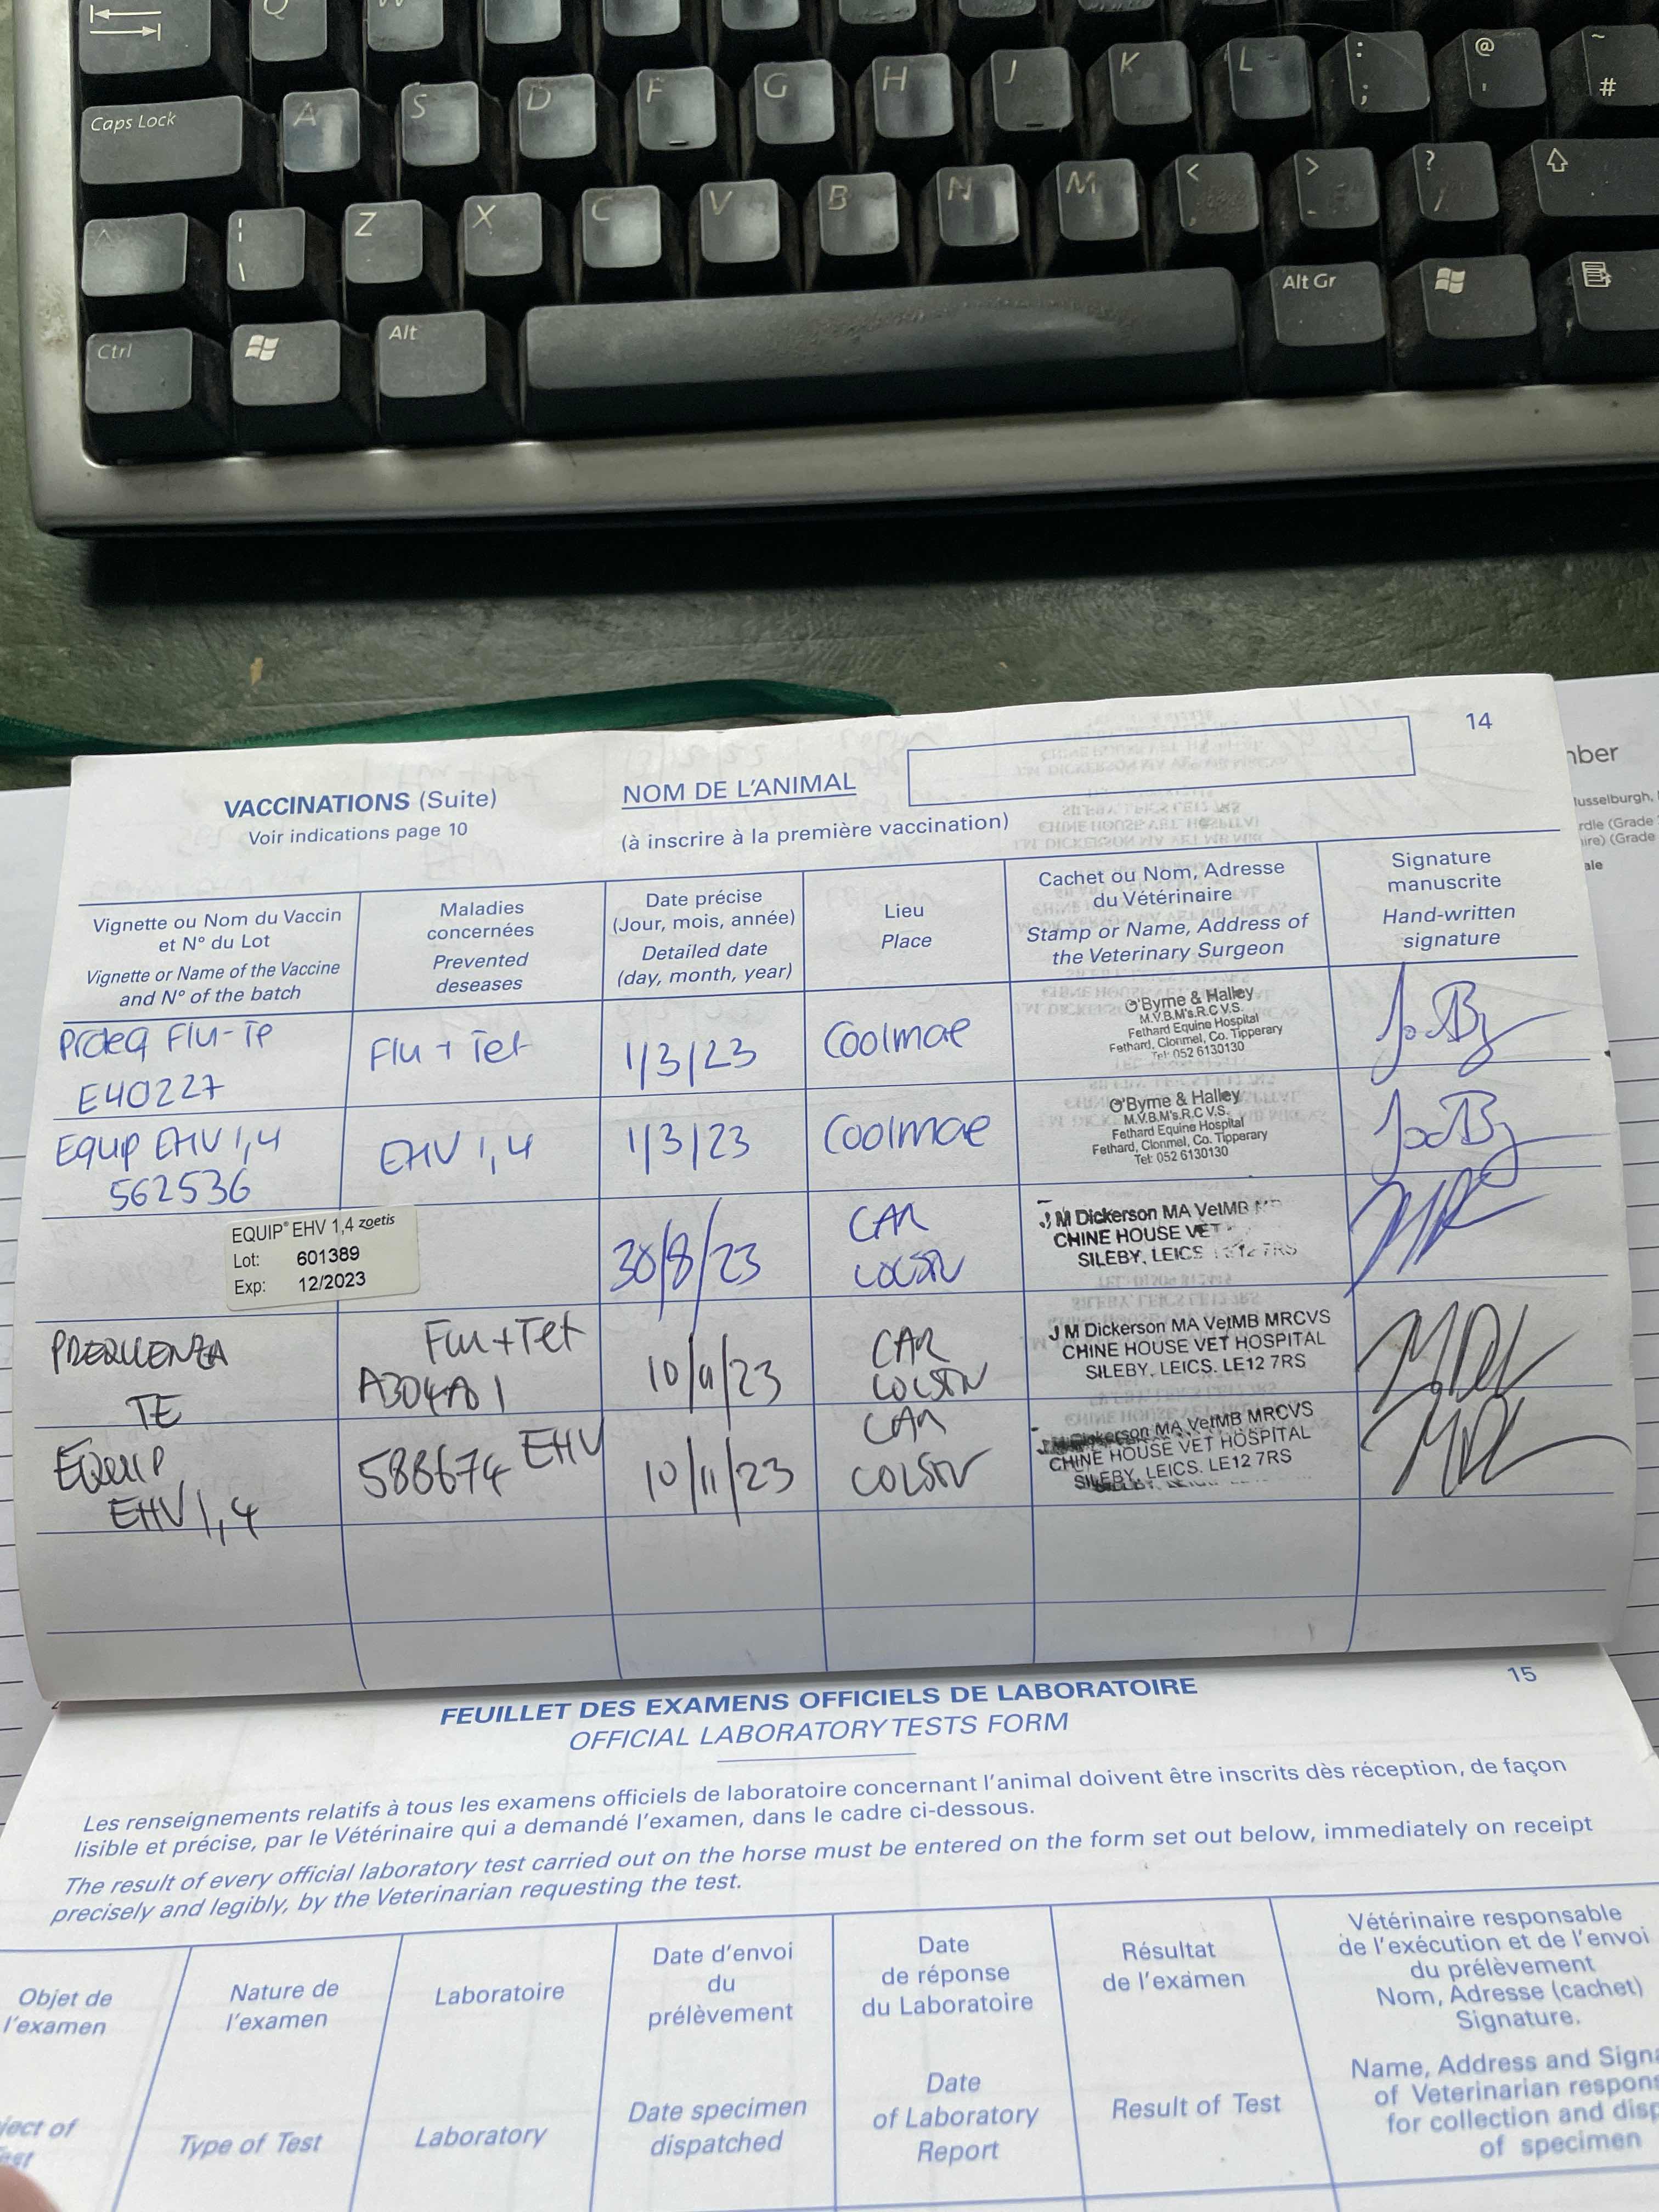 Q W
Caps Lock A S D F G H J K L : ; @ ' ~ #
Z X C V B N M < , > . ? /
Ctrl Alt Alt Gr
14
VACCINATIONS (Suite) NOM DE L'ANIMAL
Voir indications page 10 (à inscrire à la première vaccination)
Vignette ou Nom du Vaccin
et N° du Lot
Vignette or Name of the Vaccine
and N° of the batch
Maladies
concernées
Prevented
deseases
Date précise
(Jour, mois, année)
Detailed date
(day, month, year)
Lieu
Place
Cachet ou Nom, Adresse
du Vétérinaire
Stamp or Name, Address of
the Veterinary Surgeon
Signature
manuscrite
Hand-written
signature
Proteq Flu-Te
E40227
Flu + Tet
1/3/23
Coolmae
O'Byrne & Halley
M.V.B.M's.R.C V.S.
Fethard Equine Hospital
Fethard, Clonmel, Co. Tipperary
Tel: 052 6130130
Equip EHV 1,4
562536
EHV 1,4
1/3/23
Coolmae
O'Byrne & Halley
M.V.B.M's.R.C V.S.
Fethard Equine Hospital
Fethard, Clonmel, Co. Tipperary
Tel: 052 6130130
EQUIP® EHV 1,4 zoetis
Lot: 601389
Exp: 12/2023
30/8/23
CAR
COLSTON
J M Dickerson MA VetMB
CHINE HOUSE VET
SILEBY, LEICS LE12 7RS
PREQUENZA
TE
Flu+Tet
A304A01
10/11/23
CAR
COLSTON
J M Dickerson MA VetMB MRCVS
CHINE HOUSE VET HOSPITAL
SILEBY, LEICS. LE12 7RS
EQUIP
EHV 1,4
588674 EHV
10/11/23
CAR
COLSTON
J M Dickerson MA VetMB MRCVS
CHINE HOUSE VET HOSPITAL
SILEBY, LEICS. LE12 7RS
15
FEUILLET DES EXAMENS OFFICIELS DE LABORATOIRE
OFFICIAL LABORATORY TESTS FORM
Les renseignements relatifs à tous les examens officiels de laboratoire concernant l'animal doivent être inscrits dès réception, de façon
lisible et précise, par le Vétérinaire qui a demandé l'examen, dans le cadre ci-dessous.
The result of every official laboratory test carried out on the horse must be entered on the form set out below, immediately on receipt
precisely and legibly, by the Veterinarian requesting the test.
Objet de
l'examen
ject of
est
Nature de
l'examen
Type of Test
Laboratoire
Laboratory
Date d'envoi
du
prélèvement
Date specimen
dispatched
Date
de réponse
du Laboratoire
Date
of Laboratory
Report
Résultat
de l'examen
Result of Test
Vétérinaire responsable
de l'exécution et de l'envoi
du prélèvement
Nom, Adresse (cachet)
Signature.
Name, Address and Signa
of Veterinarian respons
for collection and disp
of specimen
nber
usselburgh,
rdle (Grade
ire) (Grade
ale